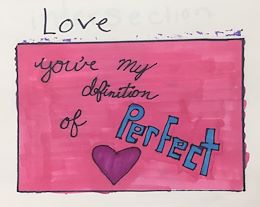 Love
you're my
definition
of Perfect